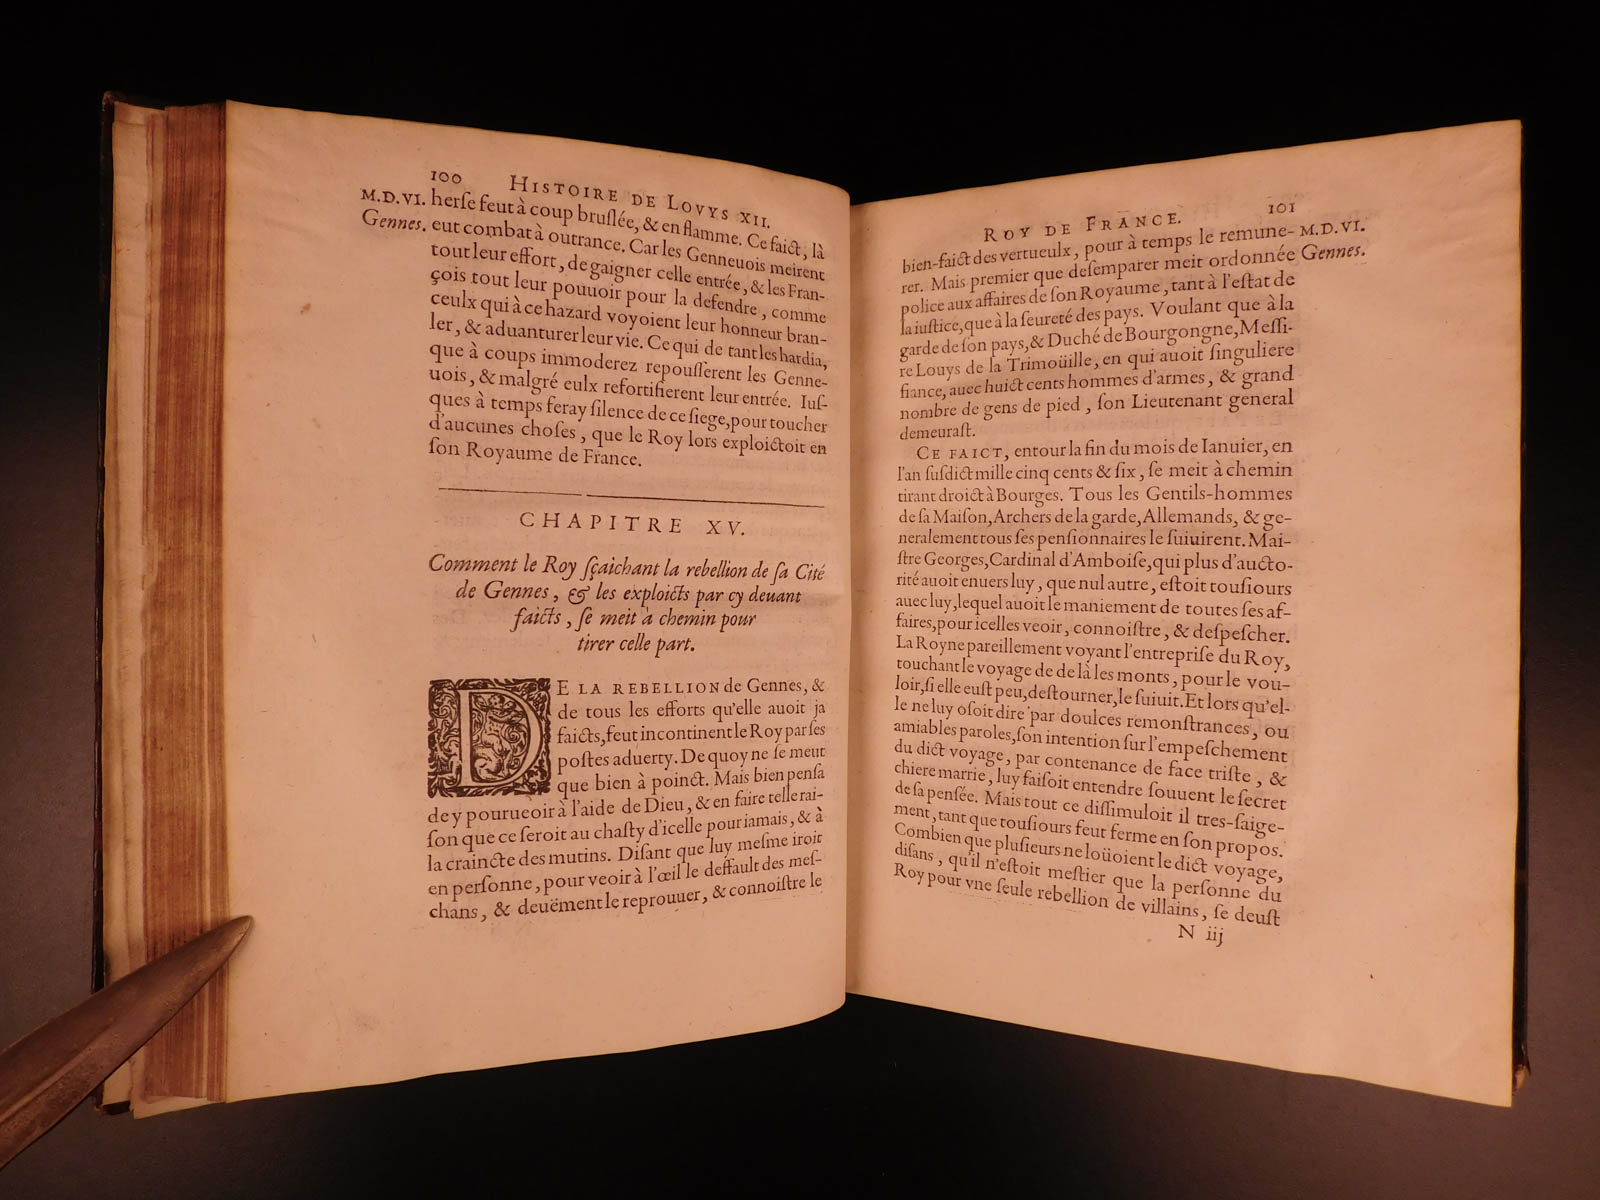 100 HISTOIRE DE LOVYS XII.
M.D.VI.
Gennes.
herſe feut à coup bruſlée, & en flamme. Ce faict, là
eut combat à outrance. Car les Genneuois meirent
tout leur effort, de gaigner celle entrée, & les Fran-
çois tout leur pouuoir pour la defendre, comme
ceulx qui à ce hazard voyoient leur honneur bran-
ler, & aduanturer leur vie. Ce qui de tant les hardia,
que à coups immoderez repouſſerent les Genne-
uois, & malgré eulx refortifierent leur entrée. Iuſ-
ques à temps feray ſilence de ce ſiege, pour toucher
d'aucunes choſes, que le Roy lors exploictoit en
ſon Royaume de France.
CHAPITRE XV.
Comment le Roy ſçaichant la rebellion de ſa Cité
de Gennes, & les exploicts par cy deuant
faicts, ſe meit à chemin pour
tirer celle part.
DE LA REBELLION de Gennes, &
de tous les efforts qu'elle auoit ja
faicts, feut incontinent le Roy par ſes
poſtes aduerty. De quoy ne ſe meut
que bien à poinct. Mais bien penſa
de y pourueoir à l'aide de Dieu, & en faire telle rai-
ſon que ce ſeroit au chaſty d'icelle pour iamais, & à
la craincte des mutins. Diſant que luy meſme iroit
en perſonne, pour veoir à l'œil le deffault des meſ-
chans, & deuëment le reprouuer, & connoiſtre le
ROY DE FRANCE. 101
M.D.VI.
Gennes.
bien-faict des vertueulx, pour à temps le remune-
rer. Mais premier que deſemparer meit ordonnée
police aux affaires de ſon Royaume, tant à l'eſtat de
la iuſtice, que à la ſeureté des pays. Voulant que à la
garde de ſon pays, & Duché de Bourgongne, Meſſi-
re Louys de la Trimoüille, en qui auoit ſinguliere
fiance, auec huict cents hommes d'armes, & grand
nombre de gens de pied, ſon Lieutenant general
demeuraſt.
CE FAICT, entour la fin du mois de Ianuier, en
l'an ſuſdict mille cinq cents & ſix, ſe meit à chemin
tirant droict à Bourges. Tous les Gentils-hommes
de ſa Maiſon, Archers de la garde, Allemands, & ge-
neralement tous ſes penſionnaires le ſuiuirent. Mai-
ſtre Georges, Cardinal d'Amboiſe, qui plus d'aucto-
rité auoit enuers luy, que nul autre, eſtoit touſiours
auec luy, lequel auoit le maniement de toutes ſes af-
faires, pour icelles veoir, connoiſtre, & deſpeſcher.
La Royne pareillement voyant l'entrepriſe du Roy,
touchant le voyage de de là les monts, pour le vou-
loir, ſi elle euſt peu, deſtourner, le ſuiuit. Et lors qu'el-
le ne luy oſoit dire par doulces remonſtrances, ou
amiables paroles, ſon intention ſur l'empeſchement
du dict voyage, par contenance de face triſte, &
chiere marrie, luy faiſoit entendre ſouuent le ſecret
de ſa penſée. Mais tout ce diſſimuloit il tres-ſaige-
ment, tant que touſiours feut ferme en ſon propos.
Combien que pluſieurs ne loüoient le dict voyage,
diſans, qu'il n'eſtoit meſtier que la perſonne du
Roy pour vne ſeule rebellion de villains, ſe deuſt
N iij